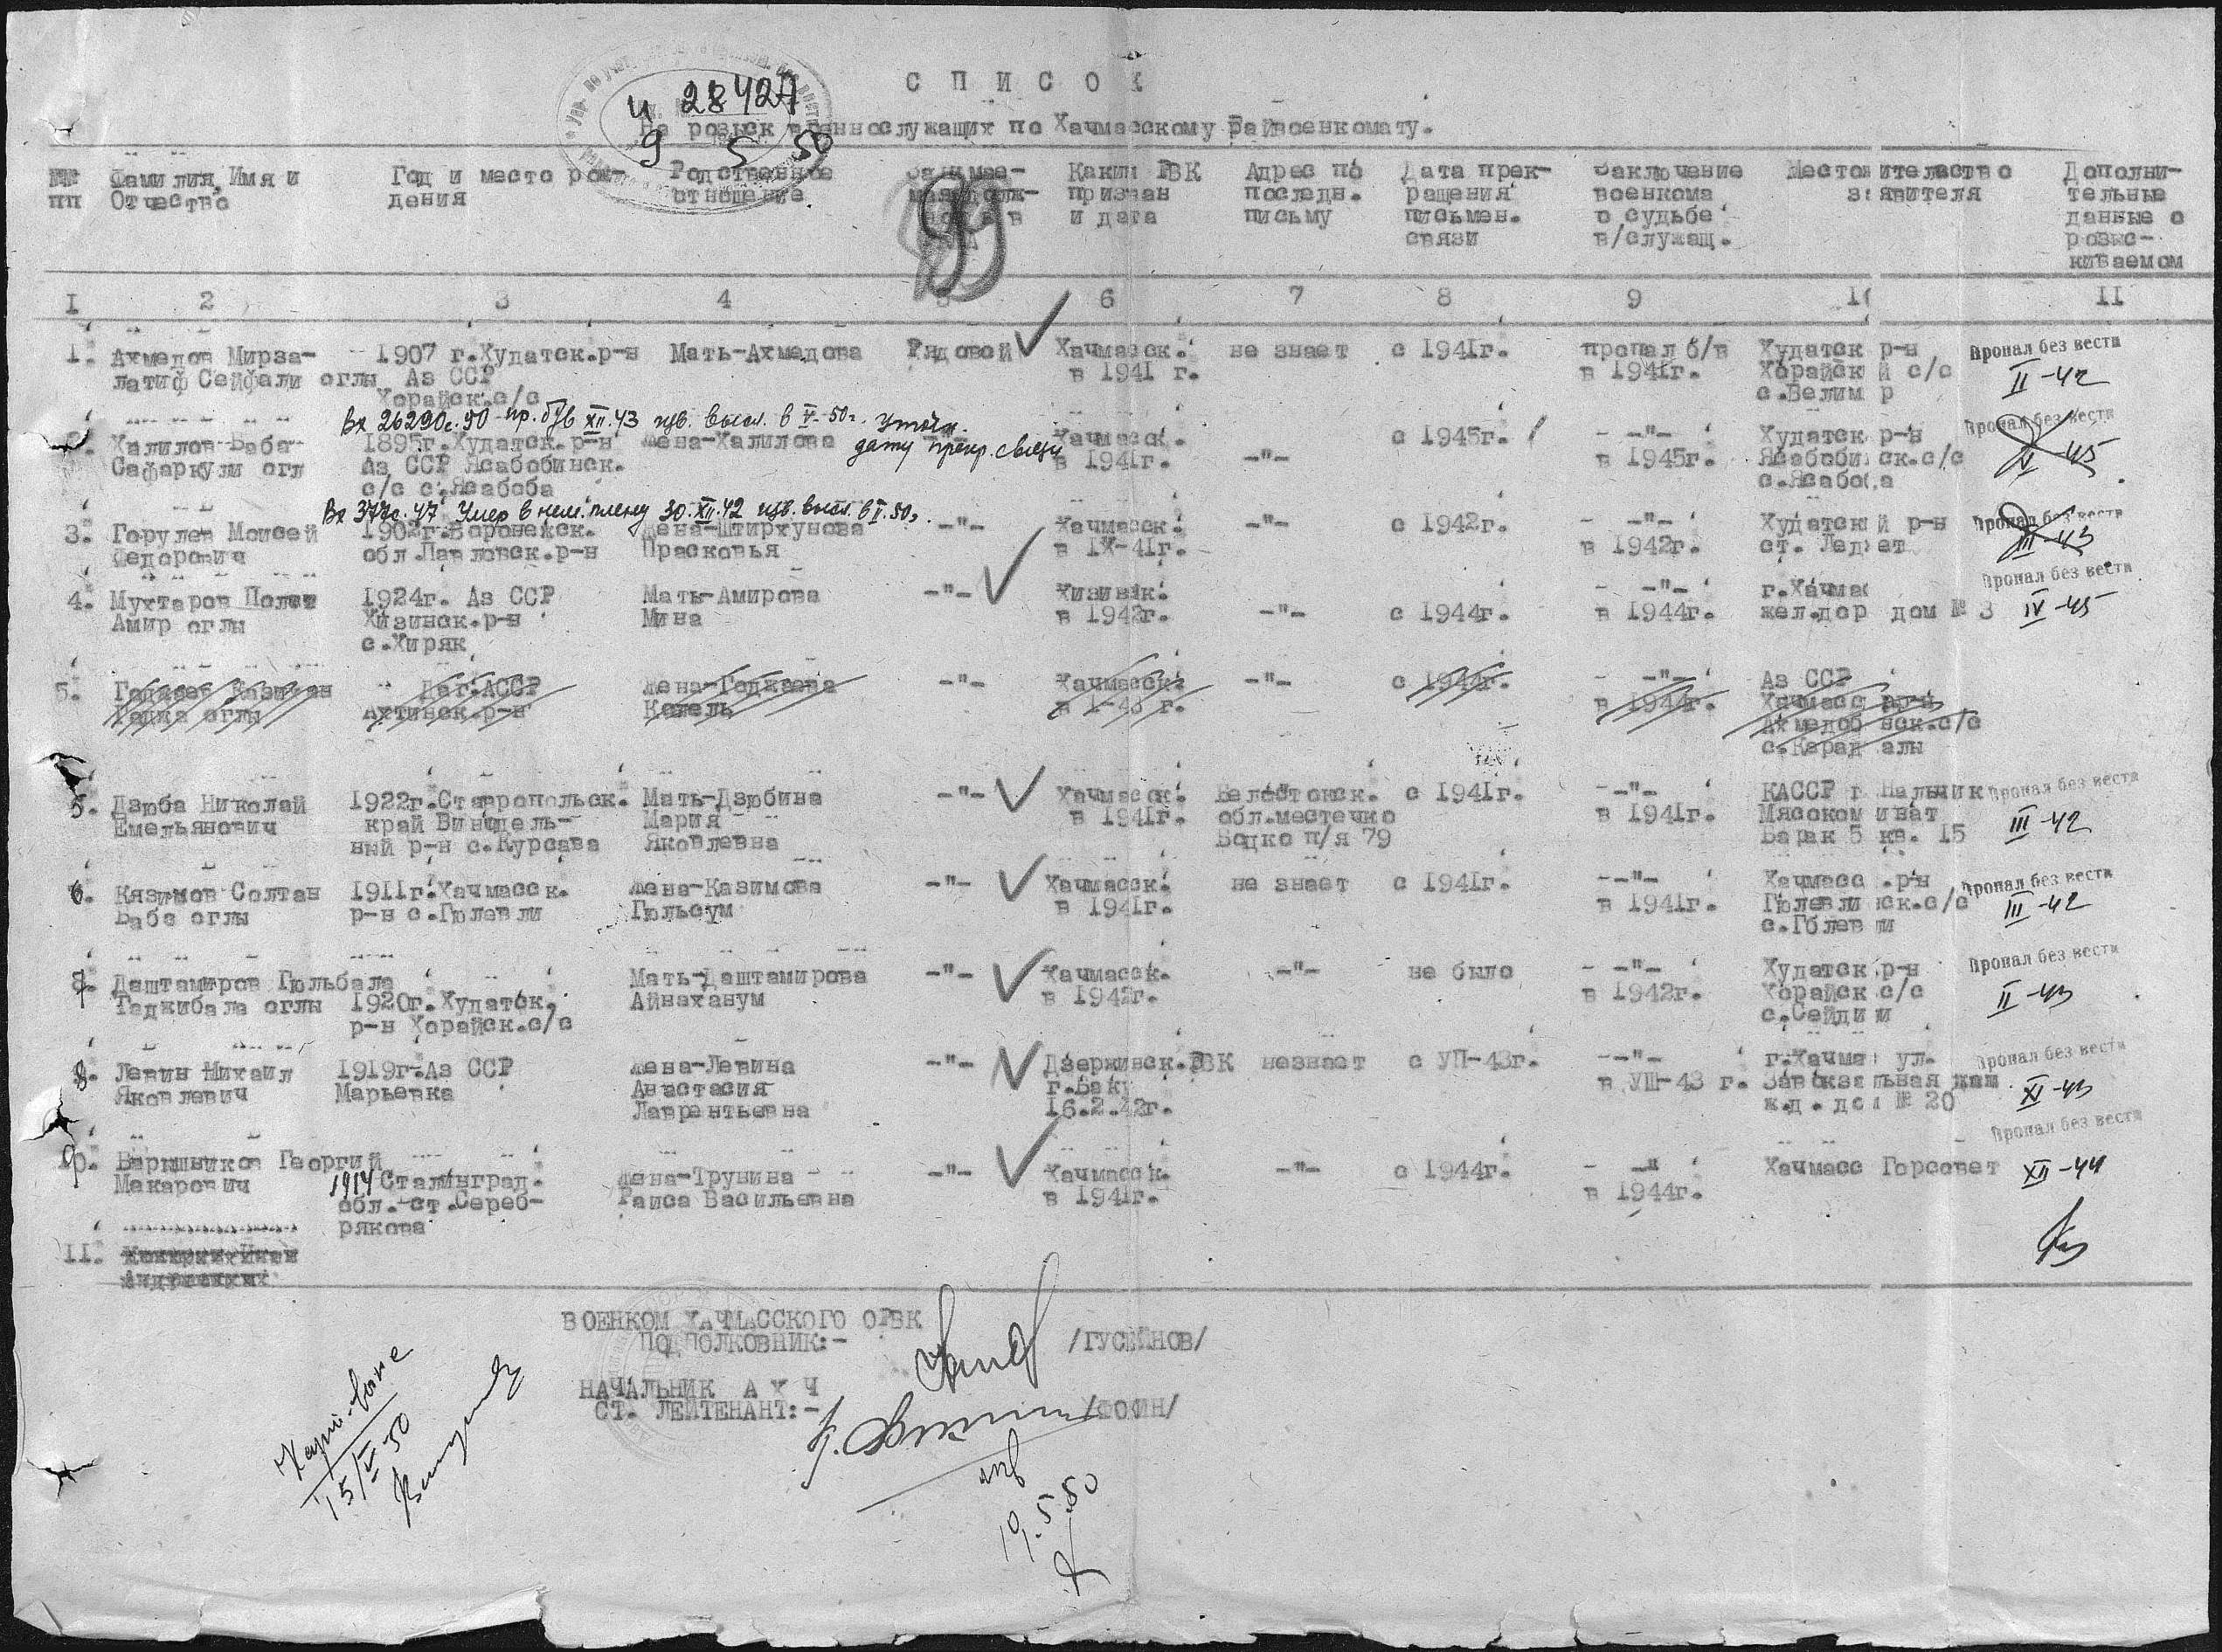 С П И С О К
и 28427
На розыск военнослужащих по Хачмасскому Райвоенкомату.
9 5 50
№№ пп
Фамилия, Имя и Отчество
Год и место рождения
Родственное отношение
Какин РВК призван и дата
Адрес по последн. письму
Дата прекращения письмен. связи
Заключение военкома о судьбе в/служащ.
Местожительство заявителя
Дополнительные данные о розыскиваемом
I 2 3 4 5 6 7 8 9 10 II
1. Ахмедов Мирза- 1907 г.Худатск.р-н Мать-Ахмедова Рядовой Хачмасск. не знает с 1941г. пропал б/в Худатск р-н Пропал без вести
латиф Сейфали оглы Аз ССР в 1941 г. в 1941г. Хорайский с/с II-42
Хорайск.с/с с.Велим р
Вх 26290с.50 пр. б/в XII.43 изв. высл. в V-50г. Уточн.
дату прекр. связи
Халилов Баба 1895г.Худатск.р-н Жена-Халилова Хачмасск. с 1945г. - -"- Худатск р-н Пропал без вести
Сафаркули огл Аз ССР Ясабобинск. в 1941г. -"- в 1945г. Ясабобинск.с/с V-45
с/с с.Ясабоба с.Ясабоба
Вх 377с.47 Умер в нем. плену 30.XII.42 изв. высл. в V.50г.
3. Горулев Моисей 1902г.Воронежск. Жена-Штирхунова -"- Хачмасск. -"- с 1942г. - -"- Худатский р-н Пропал без вести
Федорович обл.Павловск.р-н Прасковья в IX-41г. в 1942г. ст. Леджет III-43
4. Мухтаров Полат 1924г. Аз ССР Мать-Амирова -"- Хизинск. - -"- г.Хачмас Пропал без вести
Амир оглы Хизинск.р-н Мина в 1942г. -"- с 1944г. в 1944г. жел.дор дом № 3 IV-45
с.Хиряк
5. Годжаев Казихан Даг.АССР Жена-Годжаева -"- Хачмасск. -"- с 1944г. - -"- Аз ССР
Гаджа оглы Ахтинск.р-н Кожель в I-43 г. в 1944г. Хачмасс р-н
Ахмедобинск.с/с
с.Караджалы
5. Дзюба Николай 1922г.Ставропольск. Мать-Дзюбина -"- Хачмасск. Белостокск. с 1941г. --"- КАССР г Нальчик Пропал без вести
Емельянович край Винодель- Мария в 1941г. обл.местечко в 1941г. Мясокомбинат III-42
ный р-н с.Курсава Яковлевна Бодко п/я 79 Барак 5 кв. 15
6. Кязимов Солтан 1911г.Хачмасск. Жена-Казимова -"- Хачмасск. не знает с 1941г. --"- Хачмасс .р-н Пропал без вести
Баба оглы р-н с.Гюлевли Гюльсум в 1941г. в 1941г. Гюлевлинск.с/с III-42
с.Гблевли
7. Даштамиров Гюльбала Мать-Даштамирова -"- Хачмасск. -"- не было - -"- Худатск р-н Пропал без вести
Таджибала оглы 1920г.Худатск. Айнаханум в 1942г. в 1942г. Хорайск с/с II-43
р-н Хорайск.с/с с.Сейдили
8. Левин Михаил 1919г.Аз ССР Жена-Левина -"- Дзержинск.РВК незнает с УП-43г. --"- г.Хачмас ул. Пропал без вести
Яковлевич Марьевка Анастасия г.Баку в УШ-43 г. Завокзальная XI-43
Лаврентьевна 16.2.42г. ж.д. дом № 20
9. Барышников Георгий Пропал без вести
Макарович 1914 Сталинград. Жена-Трунина -"- Хачмасск. -"- с 1944г. - -" Хачмасс Горсовет XII-44
обл.-ст.Сереб- Раиса Васильевна в 1941г. в 1944г.
рякова
II.
ВОЕНКОМ ХАЧМАССКОГО ОРВК
ПОДПОЛКОВНИК:- /ГУСЕЙНОВ/
НАЧАЛЬНИК А Х Ч
СТ. ЛЕЙТЕНАНТ:- /ФОКИН/
15/V-50
19.5.50